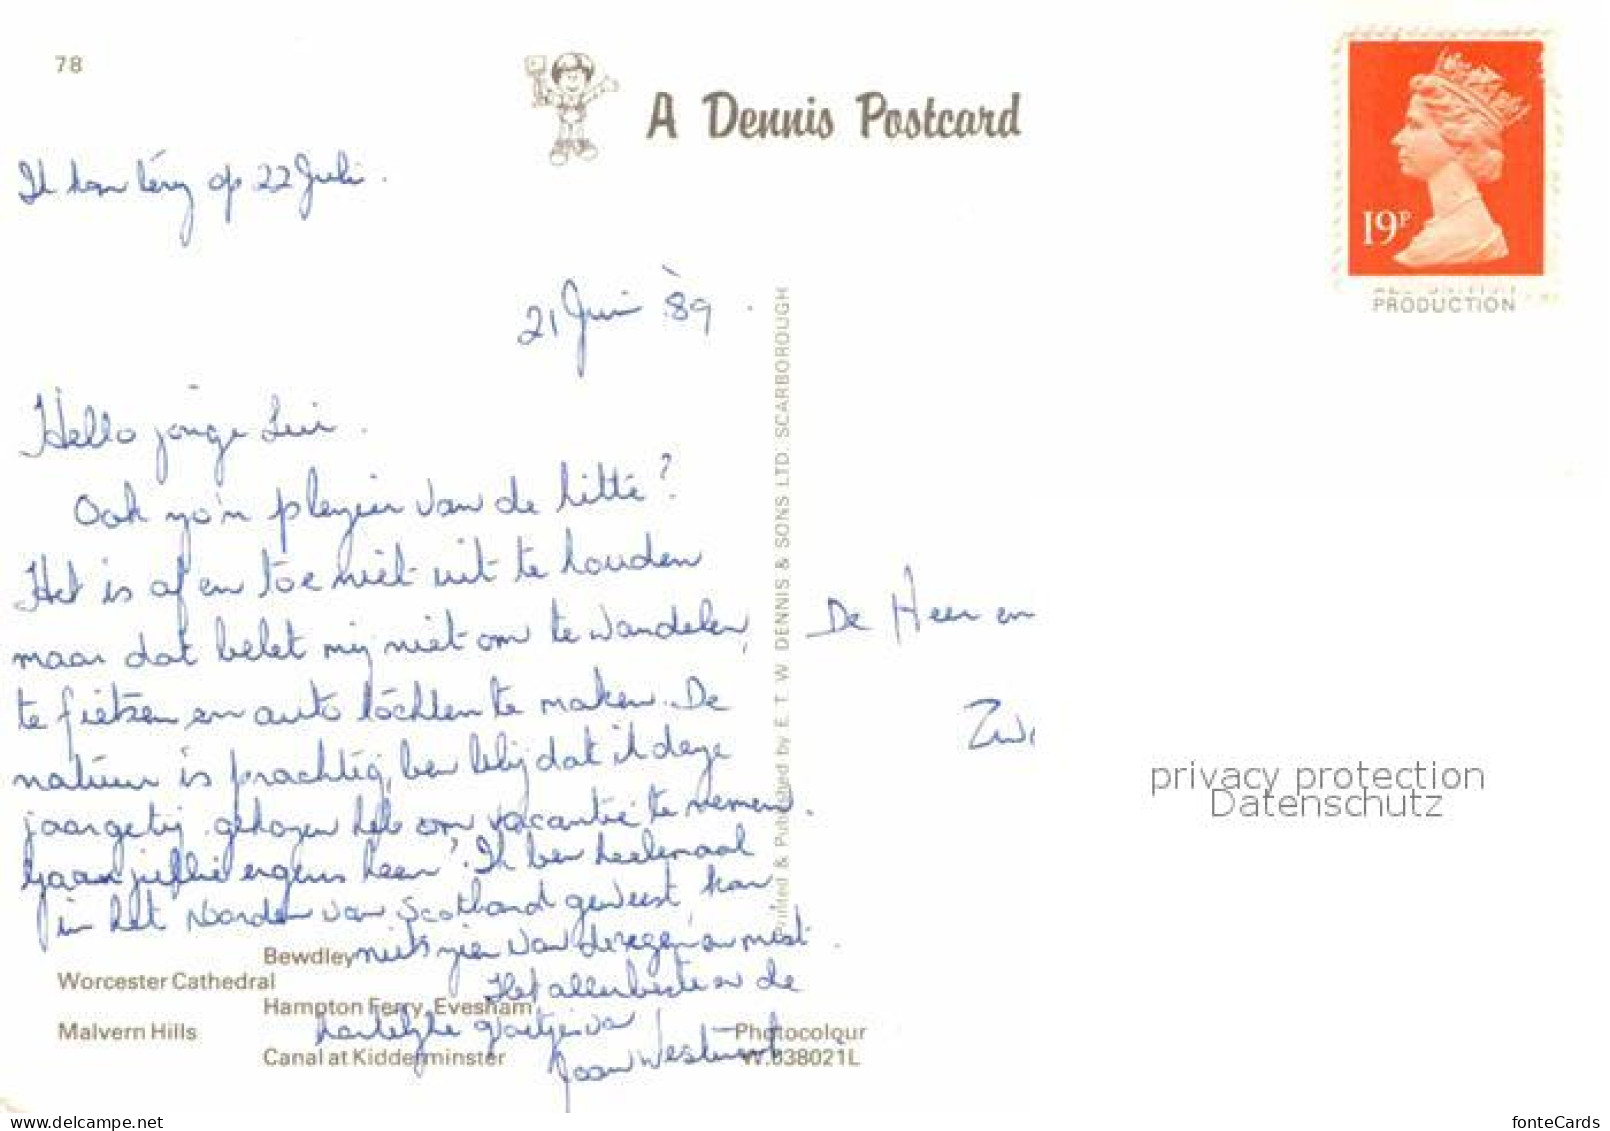 78
A Dennis Postcard
19P
PRODUCTION
Ik kom terug op 22 Juli.
21 Juni '89.
Hello jonge Lui.
Ook zo'n plezier van de hitte?
Het is af en toe niet uit te houden
maar dat belet mij niet om te wandelen,
te fietsen en auto tochten te maken. De
natuur is prachtig, ben blij dat ik deze
jaargetij gekozen heb om vacantie te nemen.
Gaan jullie ergens heen? Ik ben heelemaal
in het Norden van Scotland geweest, kon
niets zien van de regen en mist.
Het allerbeste en de
hartelijke groetjes van
Joan
De Heer en
Zw
Printed & Published by E. T. W. DENNIS & SONS LTD. SCARBOROUGH
Bewdley
Worcester Cathedral
Hampton Ferry, Evesham
Malvern Hills
Canal at Kidderminster
Photocolour
W.038021L
privacy protection
Datenschutz
www.delcampe.net
fonteCards